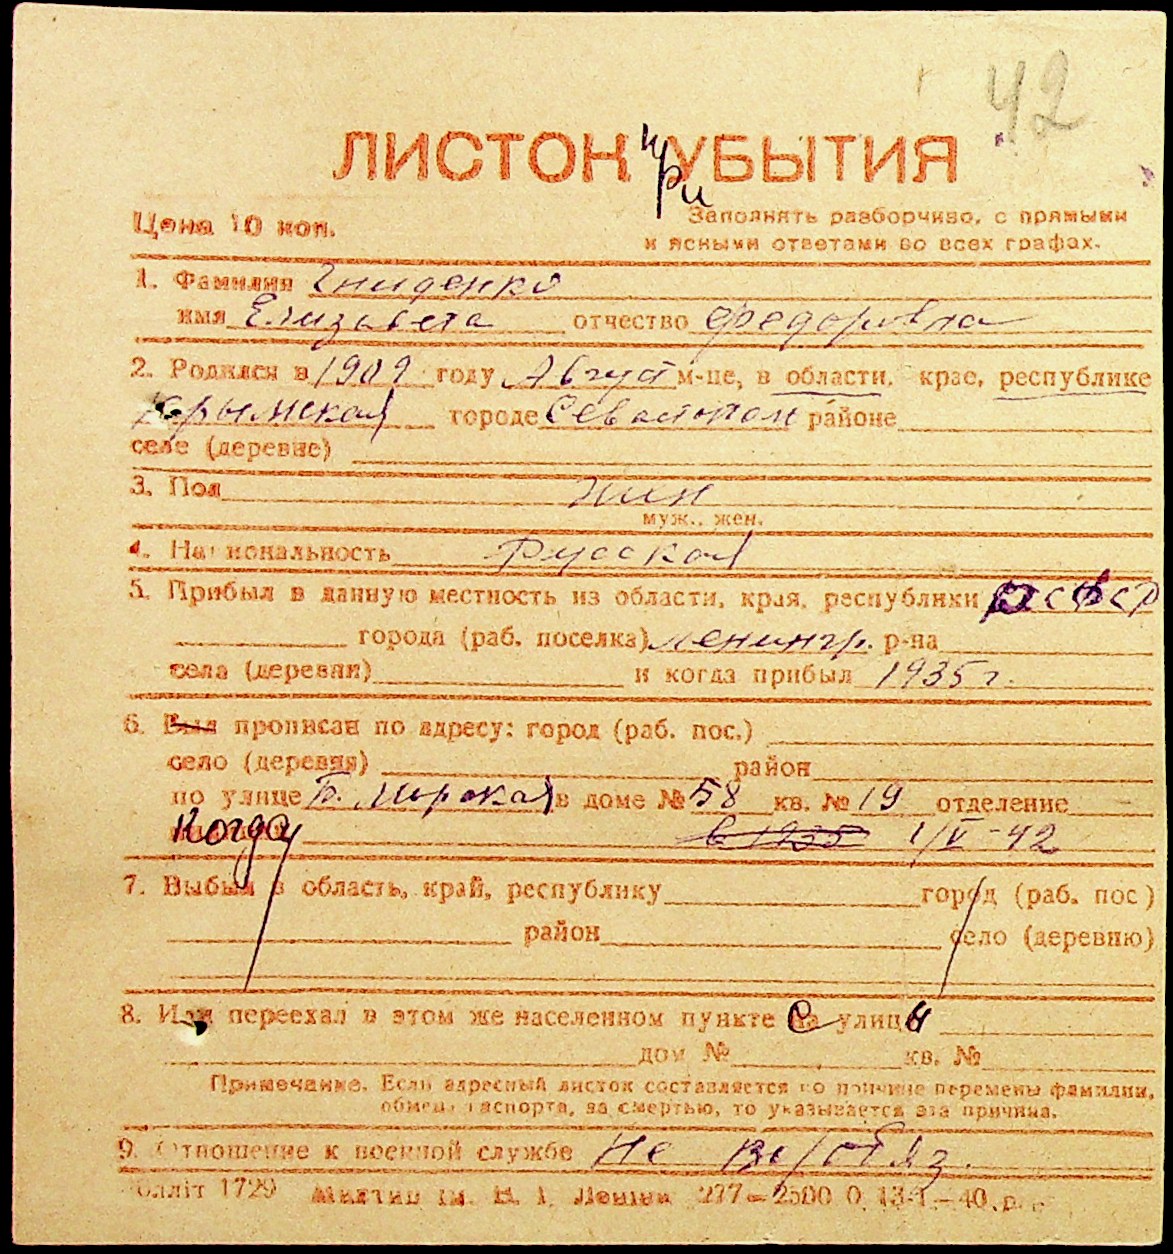 42
ЛИСТОК при УБЫТИЯ
Цена 10 коп.
Заполнять разборчиво, с прямыми
и ясными ответами во всех графах.
1. Фамилия Гниденко
имя Елизавета отчество Федоровна
2. Родился в 1909 году Август м-це, в области, крае, республике
Крымская городе Севастополь районе
селе (деревне)
3. Пол жен
муж., жен.
4. Национальность Русская
5. Прибыл в данную местность из области, края, республики РСФСР
города (раб. поселка) Ленингр. р-на
села (деревни) и когда прибыл 1935 г.
6. Был прописан по адресу: город (раб. пос.)
село (деревня) район
по улице Б. Морская в доме № 58 кв. № 19 отделение
Когда в 1935 1/V-42
7. Выбыл в область, край, республику город (раб. пос.)
район село (деревню)
8. Или переехал в этом же населенном пункте с на улицы
дом № кв. №
Примечание. Если адресный листок составляется по причине перемены фамилии,
обмена паспорта, за смертью, то указывается эта причина.
9. Отношение к военной службе Не в/обяз.
1729 277—2500 0. 13-I—40 р.